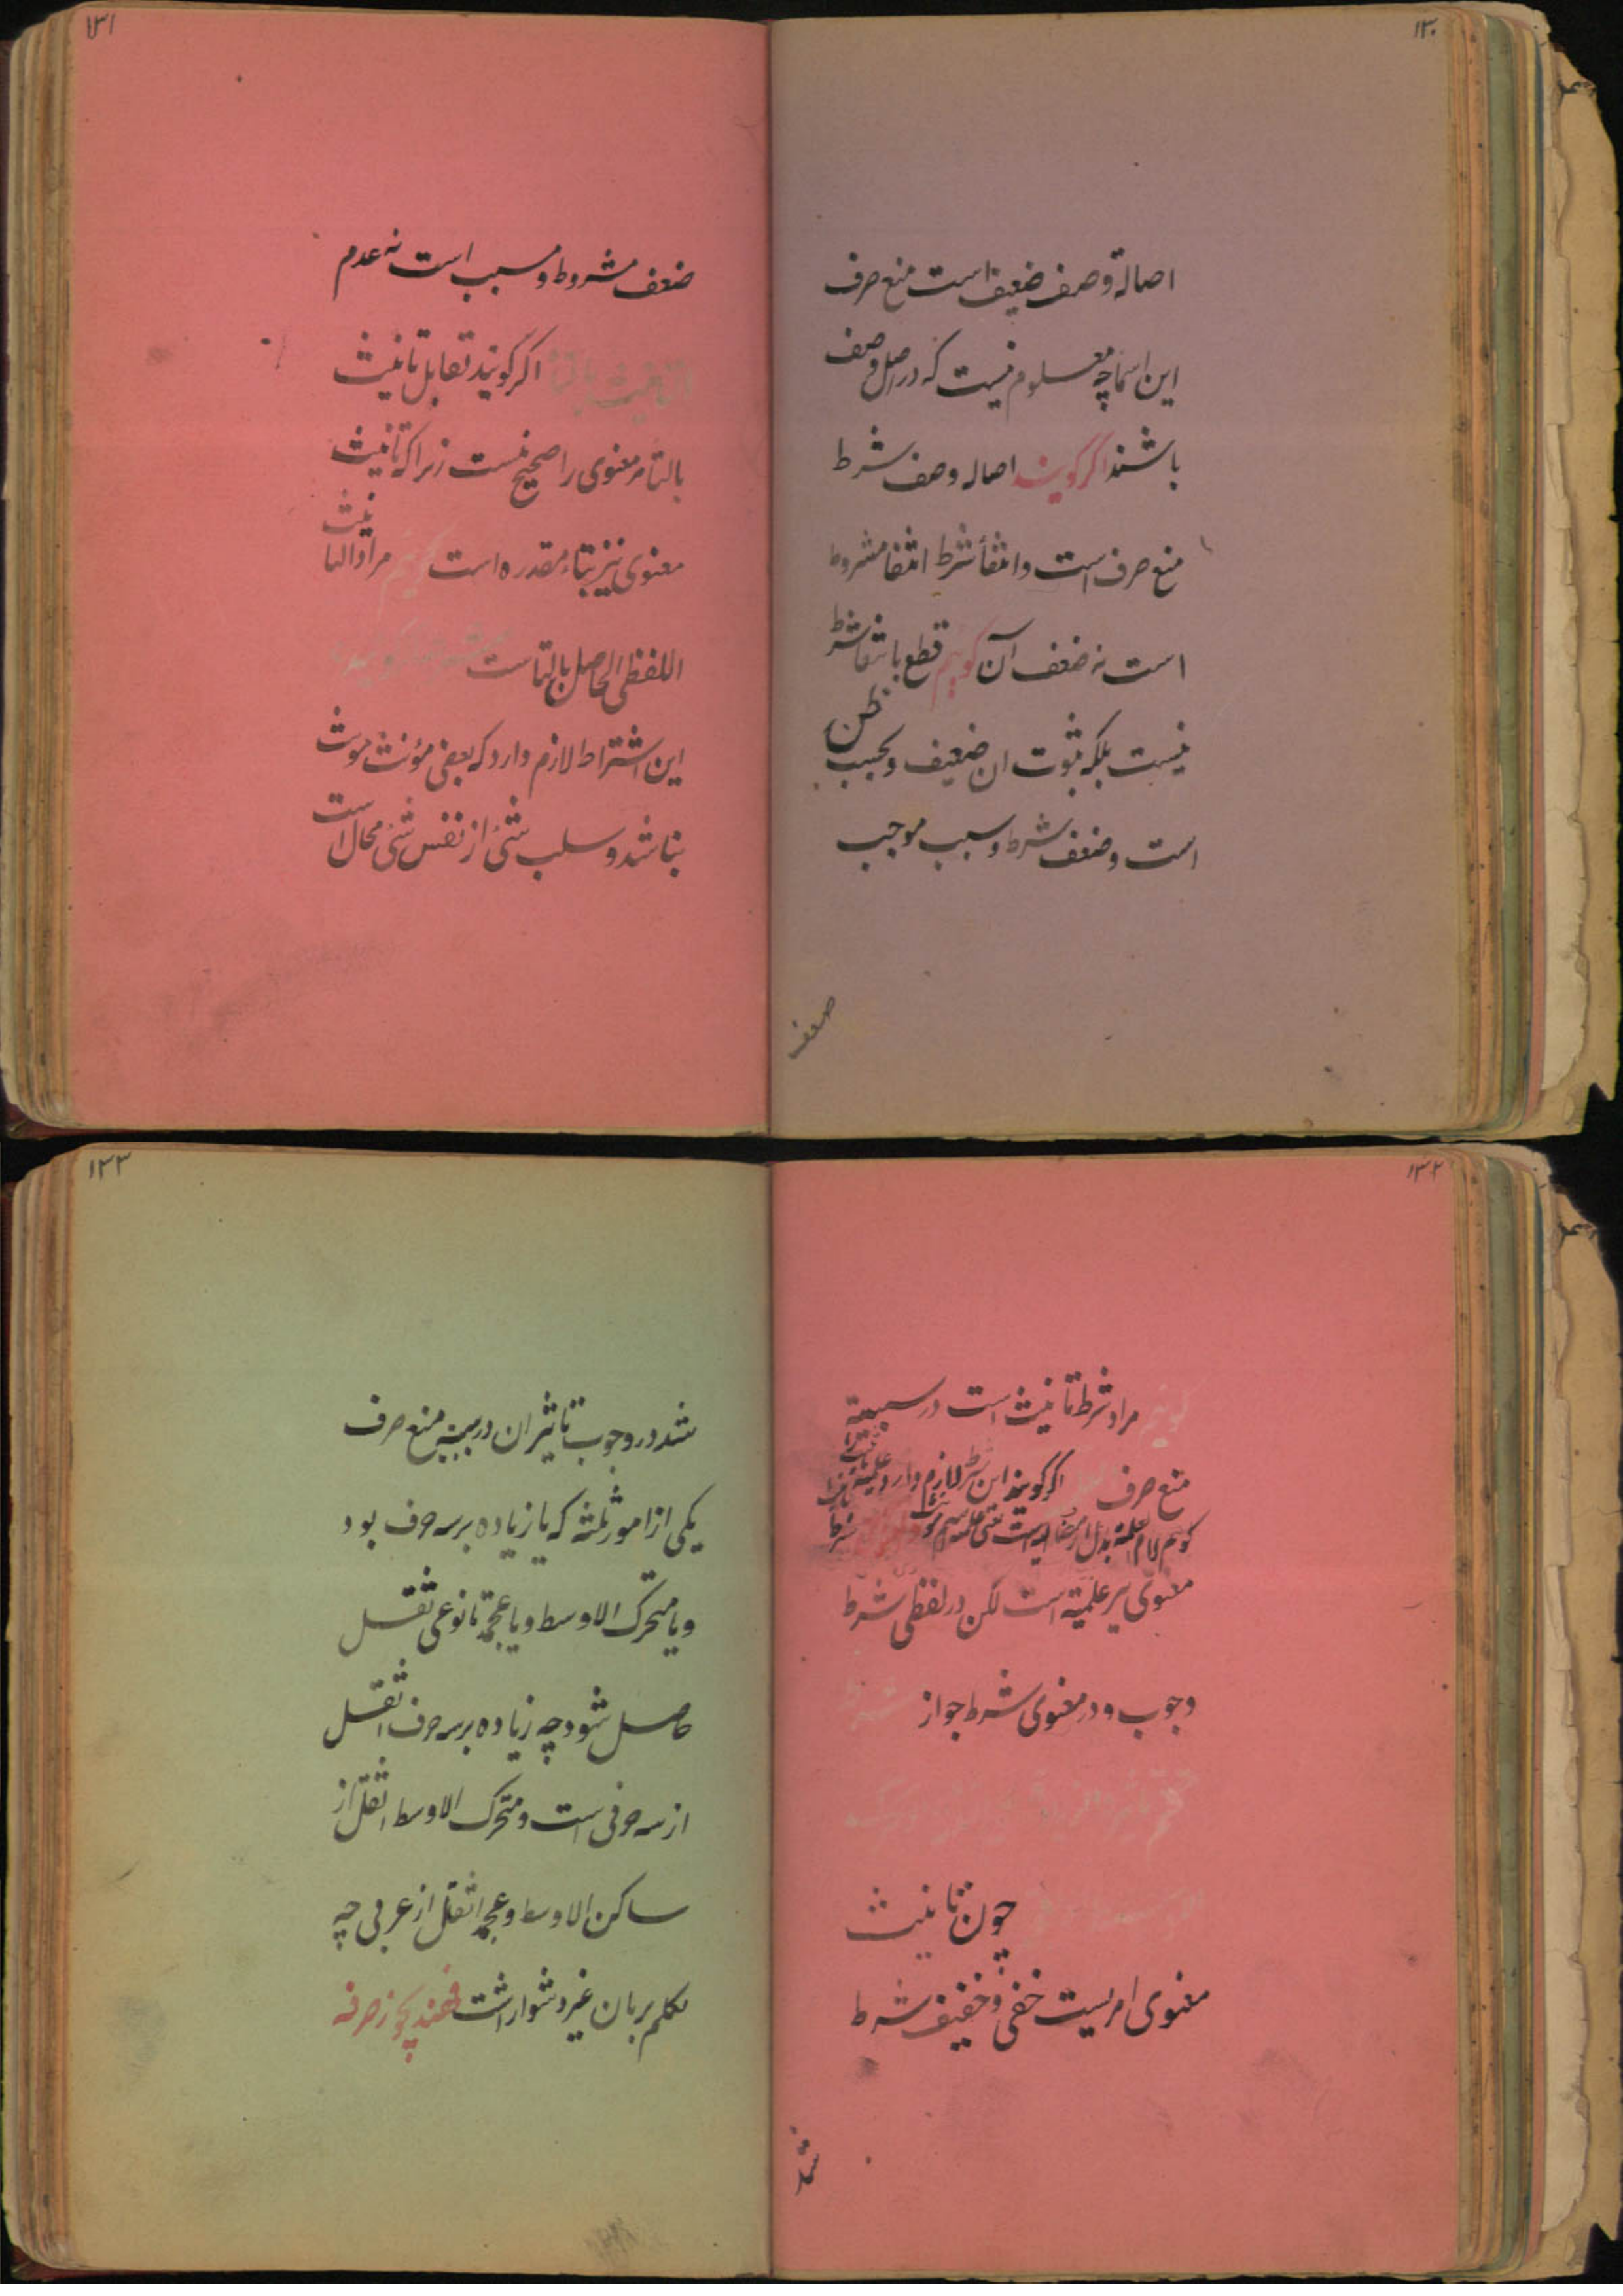 ١٣٠
اصالة وصف ضعیف است منع صرف
این اسما چه معلوم نیست که در اصل وصف
باشند اگر گویند اصاله وصف شرط
منع صرف است وانتفأ شرط انتفا مشروط
است نه ضعف آن گوئیم قطع بانتفا شرط
نیست بلکه ثبوت ان ضعیف و بحسب ظن
است وضعف شرط و سبب موجب
ضعف
١٣١
ضعف مشروط و مسبب است نه عدم
اگر گویند تقابل تانیث
بالتا مر معنوی را صحیح نیست زیرا که تانیث
معنوی نیز بتاء مقدره است گوئیم مراد التانیث
اللفظی الحاصل بالتا است
این اشتراط لازم دارد که بعضی مؤنث مونث
نباشد و سلب شئ از نفس شئ محال است
١٣٢
گوئیم مراد شرط تانیث است در سببیة
منع صرف اگر گویند این شرط لازم دارد
گویم لام العلمیة بدل از مضاف الیه است
معنوی نیز علمیة است لکن در لفظی شرط
وجوب و در معنوی شرط جواز
چون تانیث
معنوی امریست خفی و خفیف شرط
شد
١٣٣
شد در وجوب تاثیر ان در سببیة منع صرف
یکی از امور ثلثه که یا زیاده بر سه حرف بود
ویا متحرک الاوسط ویا عجمة تا نوعی ثقل
حاصل شود چه زیاده بر سه حرف اثقل
از سه حرفی است و متحرک الاوسط اثقل از
ساکن الاوسط وعجمه اثقل از عربی چه
تکلم بزبان غیر دشوار است فهند یجوز صرفه